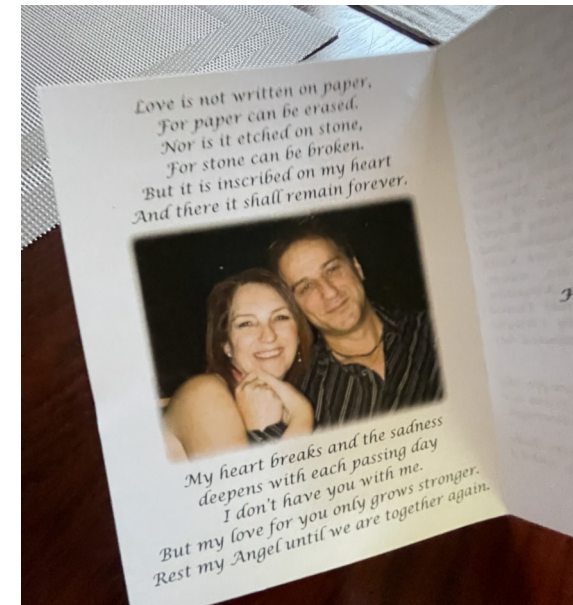 Love is not written on paper,
For paper can be erased.
Nor is it etched on stone,
For stone can be broken.
But it is inscribed on my heart
And there it shall remain forever.
My heart breaks and the sadness
deepens with each passing day
I don't have you with me.
But my love for you only grows stronger.
Rest my Angel until we are together again.